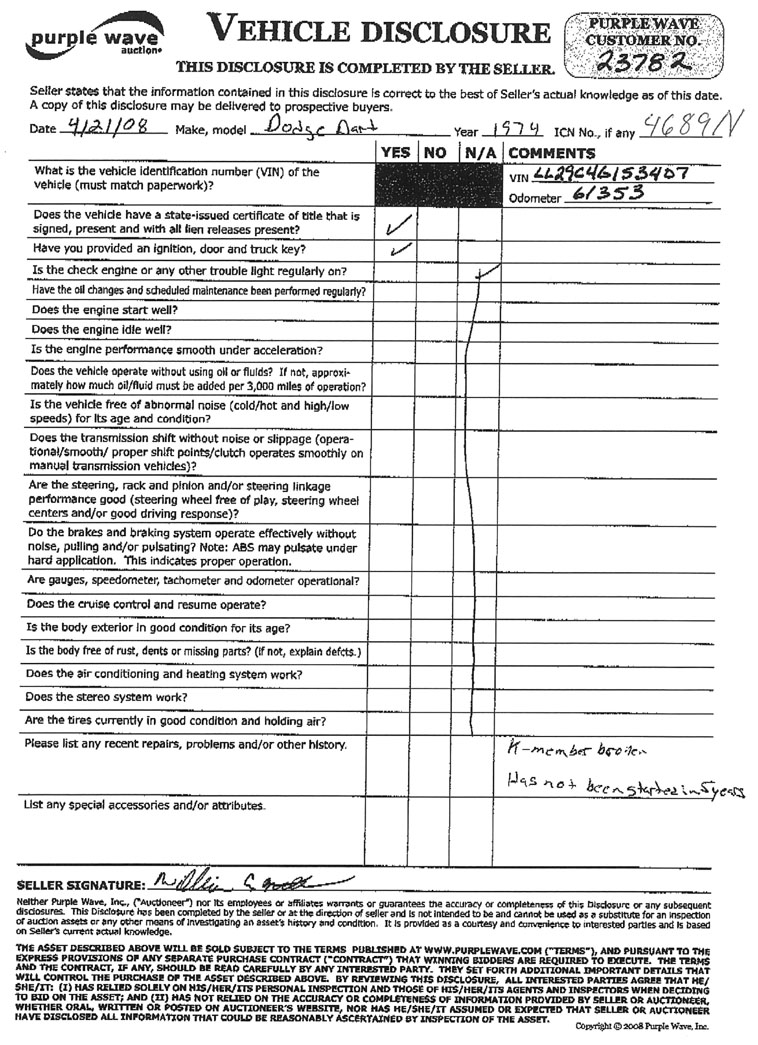 purple wave
auction
VEHICLE DISCLOSURE
THIS DISCLOSURE IS COMPLETED BY THE SELLER.
PURPLE WAVE
CUSTOMER NO.
23782
Seller states that the information contained in this disclosure is correct to the best of Seller's actual knowledge as of this date.
A copy of this disclosure may be delivered to prospective buyers.
Date 4/21/08 Make, model Dodge Dart Year 1974 ICN No., if any 4689N
YES NO N/A COMMENTS
What is the vehicle identification number (VIN) of the
vehicle (must match paperwork)?
VIN LL29C4G153407
Odometer 61353
Does the vehicle have a state-issued certificate of title that is
signed, present and with all lien releases present?
Have you provided an ignition, door and truck key?
Is the check engine or any other trouble light regularly on?
Have the oil changes and scheduled maintenance been performed regularly?
Does the engine start well?
Does the engine idle well?
Is the engine performance smooth under acceleration?
Does the vehicle operate without using oil or fluids? If not, approxi-
mately how much oil/fluid must be added per 3,000 miles of operation?
Is the vehicle free of abnormal noise (cold/hot and high/low
speeds) for its age and condition?
Does the transmission shift without noise or slippage (opera-
tional/smooth/ proper shift points/clutch operates smoothly on
manual transmission vehicles)?
Are the steering, rack and pinion and/or steering linkage
performance good (steering wheel free of play, steering wheel
centers and/or good driving response)?
Do the brakes and braking system operate effectively without
noise, pulling and/or pulsating? Note: ABS may pulsate under
hard application. This indicates proper operation.
Are gauges, speedometer, tachometer and odometer operational?
Does the cruise control and resume operate?
Is the body exterior in good condition for its age?
Is the body free of rust, dents or missing parts? (if not, explain defcts.)
Does the air conditioning and heating system work?
Does the stereo system work?
Are the tires currently in good condition and holding air?
Please list any recent repairs, problems and/or other history.
K-member broken
Has not been started in 5 years
List any special accessories and/or attributes.
SELLER SIGNATURE:
Neither Purple Wave, Inc., ("Auctioneer") nor its employees or affiliates warrants or guarantees the accuracy or completeness of this Disclosure or any subsequent
disclosures. This Disclosure has been completed by the seller or at the direction of seller and is not intended to be and cannot be used as a substitute for an inspection
of auction assets or any other means of investigating an asset's history and condition. It is provided as a courtesy and convenience to interested parties and is based
on Seller's current actual knowledge.
THE ASSET DESCRIBED ABOVE WILL BE SOLD SUBJECT TO THE TERMS PUBLISHED AT WWW.PURPLEWAVE.COM ("TERMS"), AND PURSUANT TO THE
EXPRESS PROVISIONS OF ANY SEPARATE PURCHASE CONTRACT ("CONTRACT") THAT WINNING BIDDERS ARE REQUIRED TO EXECUTE. THE TERMS
AND THE CONTRACT, IF ANY, SHOULD BE READ CAREFULLY BY ANY INTERESTED PARTY. THEY SET FORTH ADDITIONAL IMPORTANT DETAILS THAT
WILL CONTROL THE PURCHASE OF THE ASSET DESCRIBED ABOVE. BY REVIEWING THIS DISCLOSURE, ALL INTERESTED PARTIES AGREE THAT HE/
SHE/IT: (I) HAS RELIED SOLELY ON HIS/HER/ITS PERSONAL INSPECTION AND THOSE OF HIS/HER/ITS AGENTS AND INSPECTORS WHEN DECIDING
TO BID ON THE ASSET; AND (II) HAS NOT RELIED ON THE ACCURACY OR COMPLETENESS OF INFORMATION PROVIDED BY SELLER OR AUCTIONEER,
WHETHER ORAL, WRITTEN OR POSTED ON AUCTIONEER'S WEBSITE, NOR HAS HE/SHE/IT ASSUMED OR EXPECTED THAT SELLER OR AUCTIONEER
HAVE DISCLOSED ALL INFORMATION THAT COULD BE REASONABLY ASCERTAINED BY INSPECTION OF THE ASSET.
Copyright © 2008 Purple Wave, Inc.